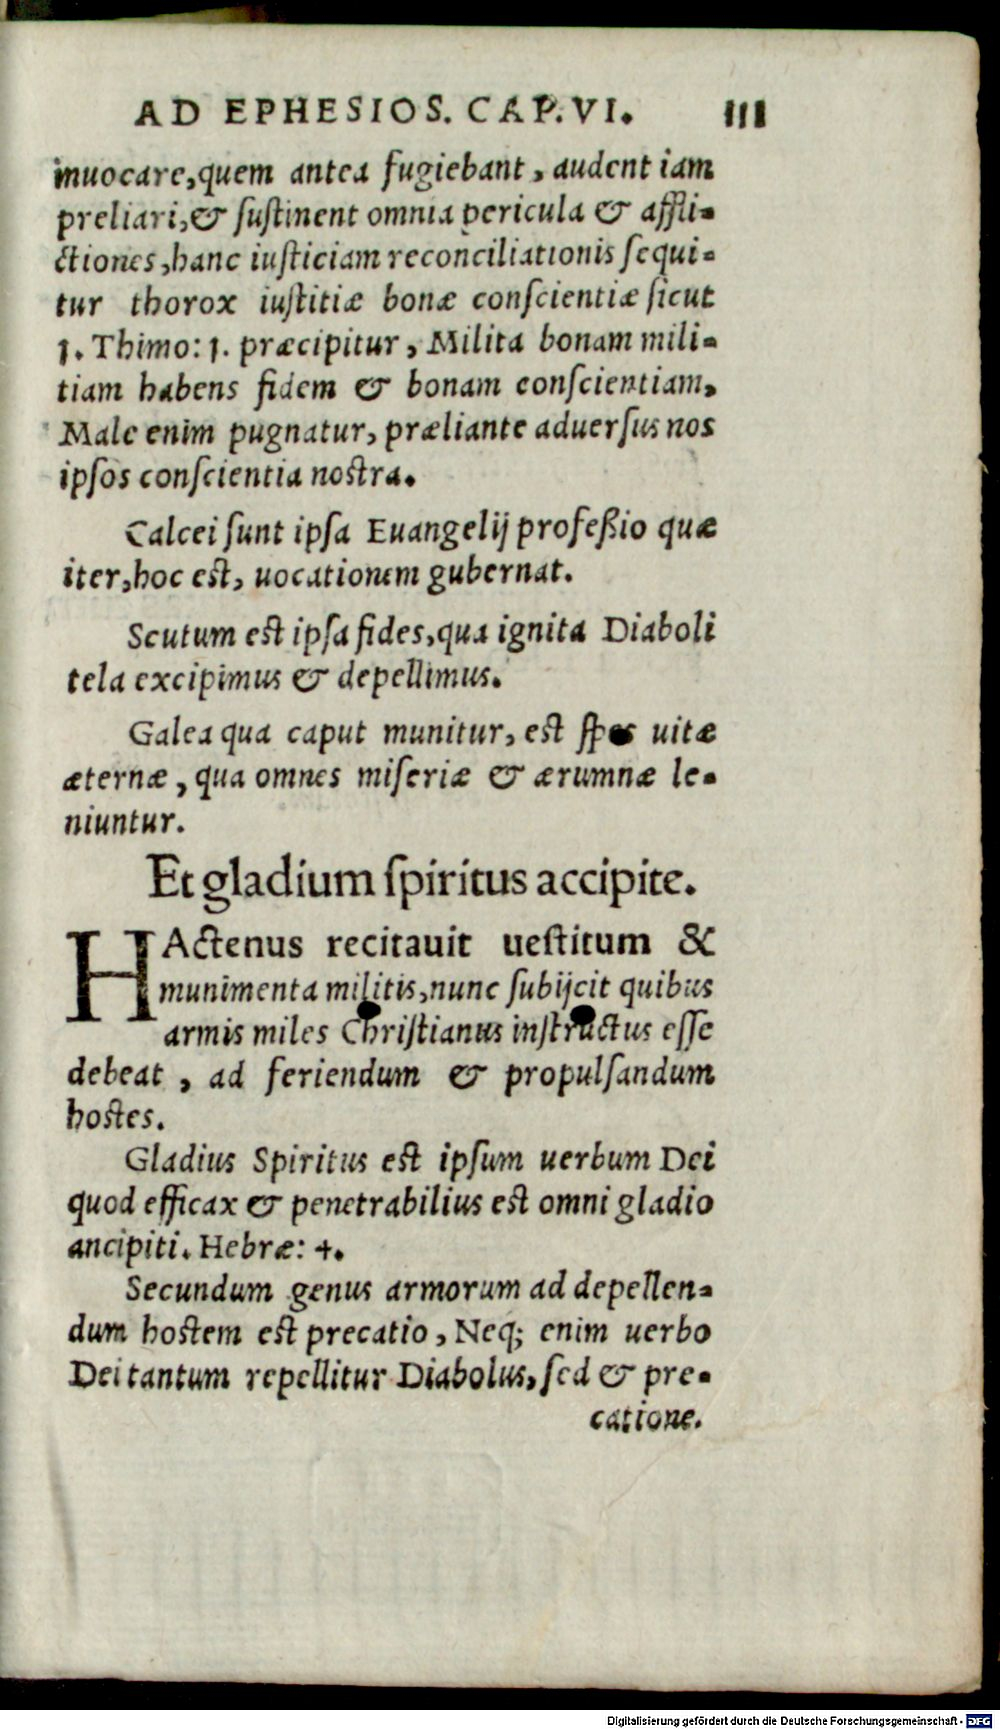 AD EPHESIOS. CAP. VI. 111
inuocare, quem antea fugiebant, audent iam
preliari, & ſuſtinent omnia pericula & affli-
ctiones, hanc iuſticiam reconciliationis ſequi-
tur thorox iuſtitiæ bonæ conſcientiæ ſicut
1. Thimo: 1. præcipitur, Milita bonam mili-
tiam habens fidem & bonam conſcientiam,
Male enim pugnatur, præliante aduerſus nos
ipſos conſcientia noſtra.
Calcei ſunt ipſa Euangelij profeßio quæ
iter, hoc eſt, uocationem gubernat.
Scutum eſt ipſa fides, qua ignita Diaboli
tela excipimus & depellimus.
Galea qua caput munitur, eſt ſpes uitæ
æternæ, qua omnes miſeriæ & ærumnæ le-
niuntur.
Et gladium ſpiritus accipite.
HActenus recitauit ueſtitum &
munimenta militis, nunc ſubijcit quibus
armis miles Chriſtianus inſtructus eſſe
debeat, ad feriendum & propulſandum
hoſtes.
Gladius Spiritus eſt ipſum uerbum Dei
quod efficax & penetrabilius eſt omni gladio
ancipiti. Hebræ: 4.
Secundum genus armorum ad depellen-
dum hoſtem eſt precatio, Neq; enim uerbo
Dei tantum repellitur Diabolus, ſed & pre-
catione.
Digitalisierung gefördert durch die Deutsche Forschungsgemeinschaft - DFG